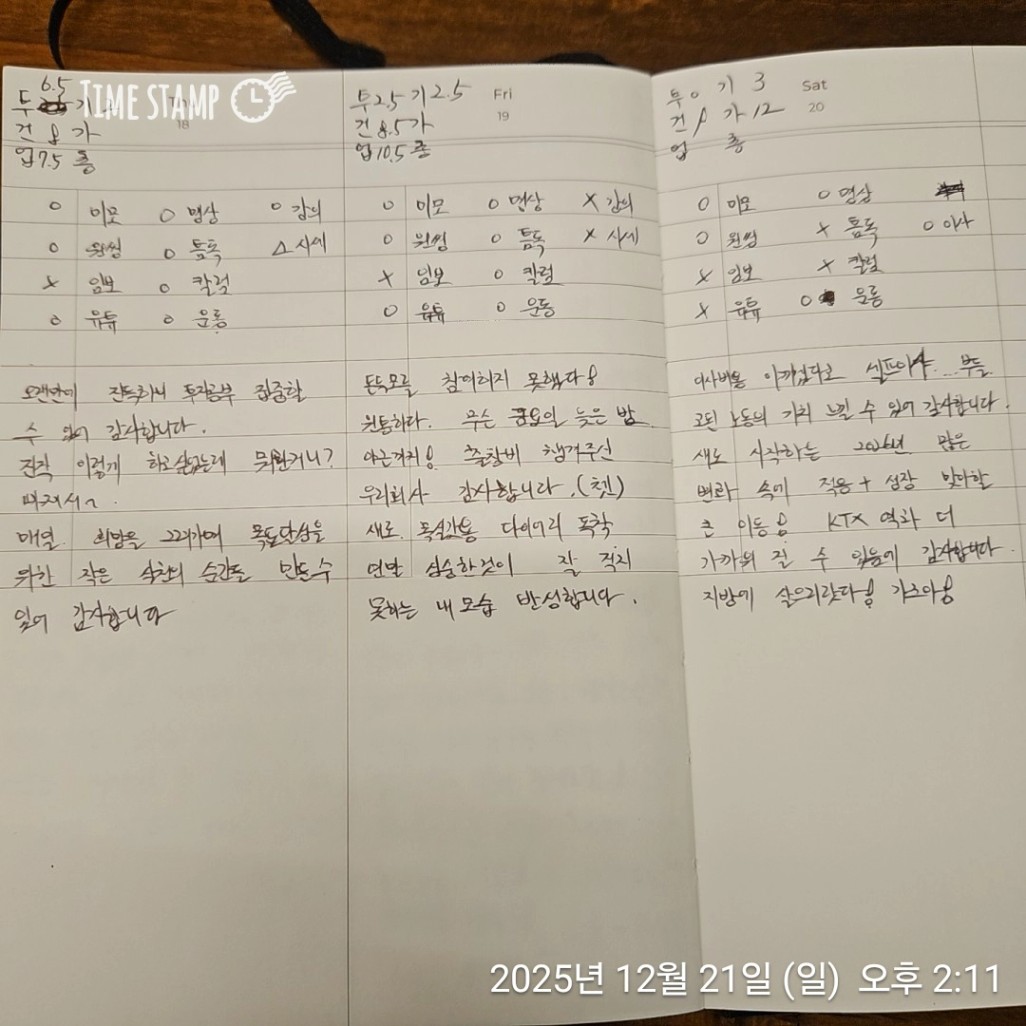 TIME STAMP
6.5
투 기
Thu
18
건 8 가
업 7.5 총
o 미모 o 명상 o 강의
o 원씽 o 틈독 △ 시세
x 임보 o 칼럼
o 유튜 o 운동
오랜만에 잔득하니 투자공부 집중할
수 있어 감사합니다.
진작 이렇게 하고싶었는데 뭐한거니?
매일 희망을 그려가며 목표달성을
위한 작은 실천의 순간들 만든수
있어 감사합니다
투2.5 기2.5
Fri
19
건 8.5 가
업 10.5 총
o 미모 o 명상 x 강의
o 원씽 o 틈독 x 시세
x 임보 o 칼럼
o 유튜 o 운동
돈독모를 참여하지 못했다!
원통하다. 무슨 금요일 늦은 밤
야근까지! 출장비 챙겨주신
우리회사 감사합니다. (쳇)
새로 목실감용 다이어리 도착
연말 싱숭한것이 잘 적지
못하는 내 모습 반성합니다.
투 0 기 3
Sat
20
건 8 가 12
업 총
o 미모 o 명상
o 원씽 x 틈독 o 이사
x 임보 x 칼럼
x 유튜 o 운동
이사비용 아까웠다고 셀프이사... 부들
고된 노동의 가치 느낄 수 있어 감사합니다.
새로 시작하는 2026년 많은
변화 속에 적응 + 성장 맞이할
큰 이동! KTX 역과 더
가까워 질 수 있음에 감사합니다.
지방에 살으리랏다! 가즈아!
2025년 12월 21일 (일) 오후 2:11